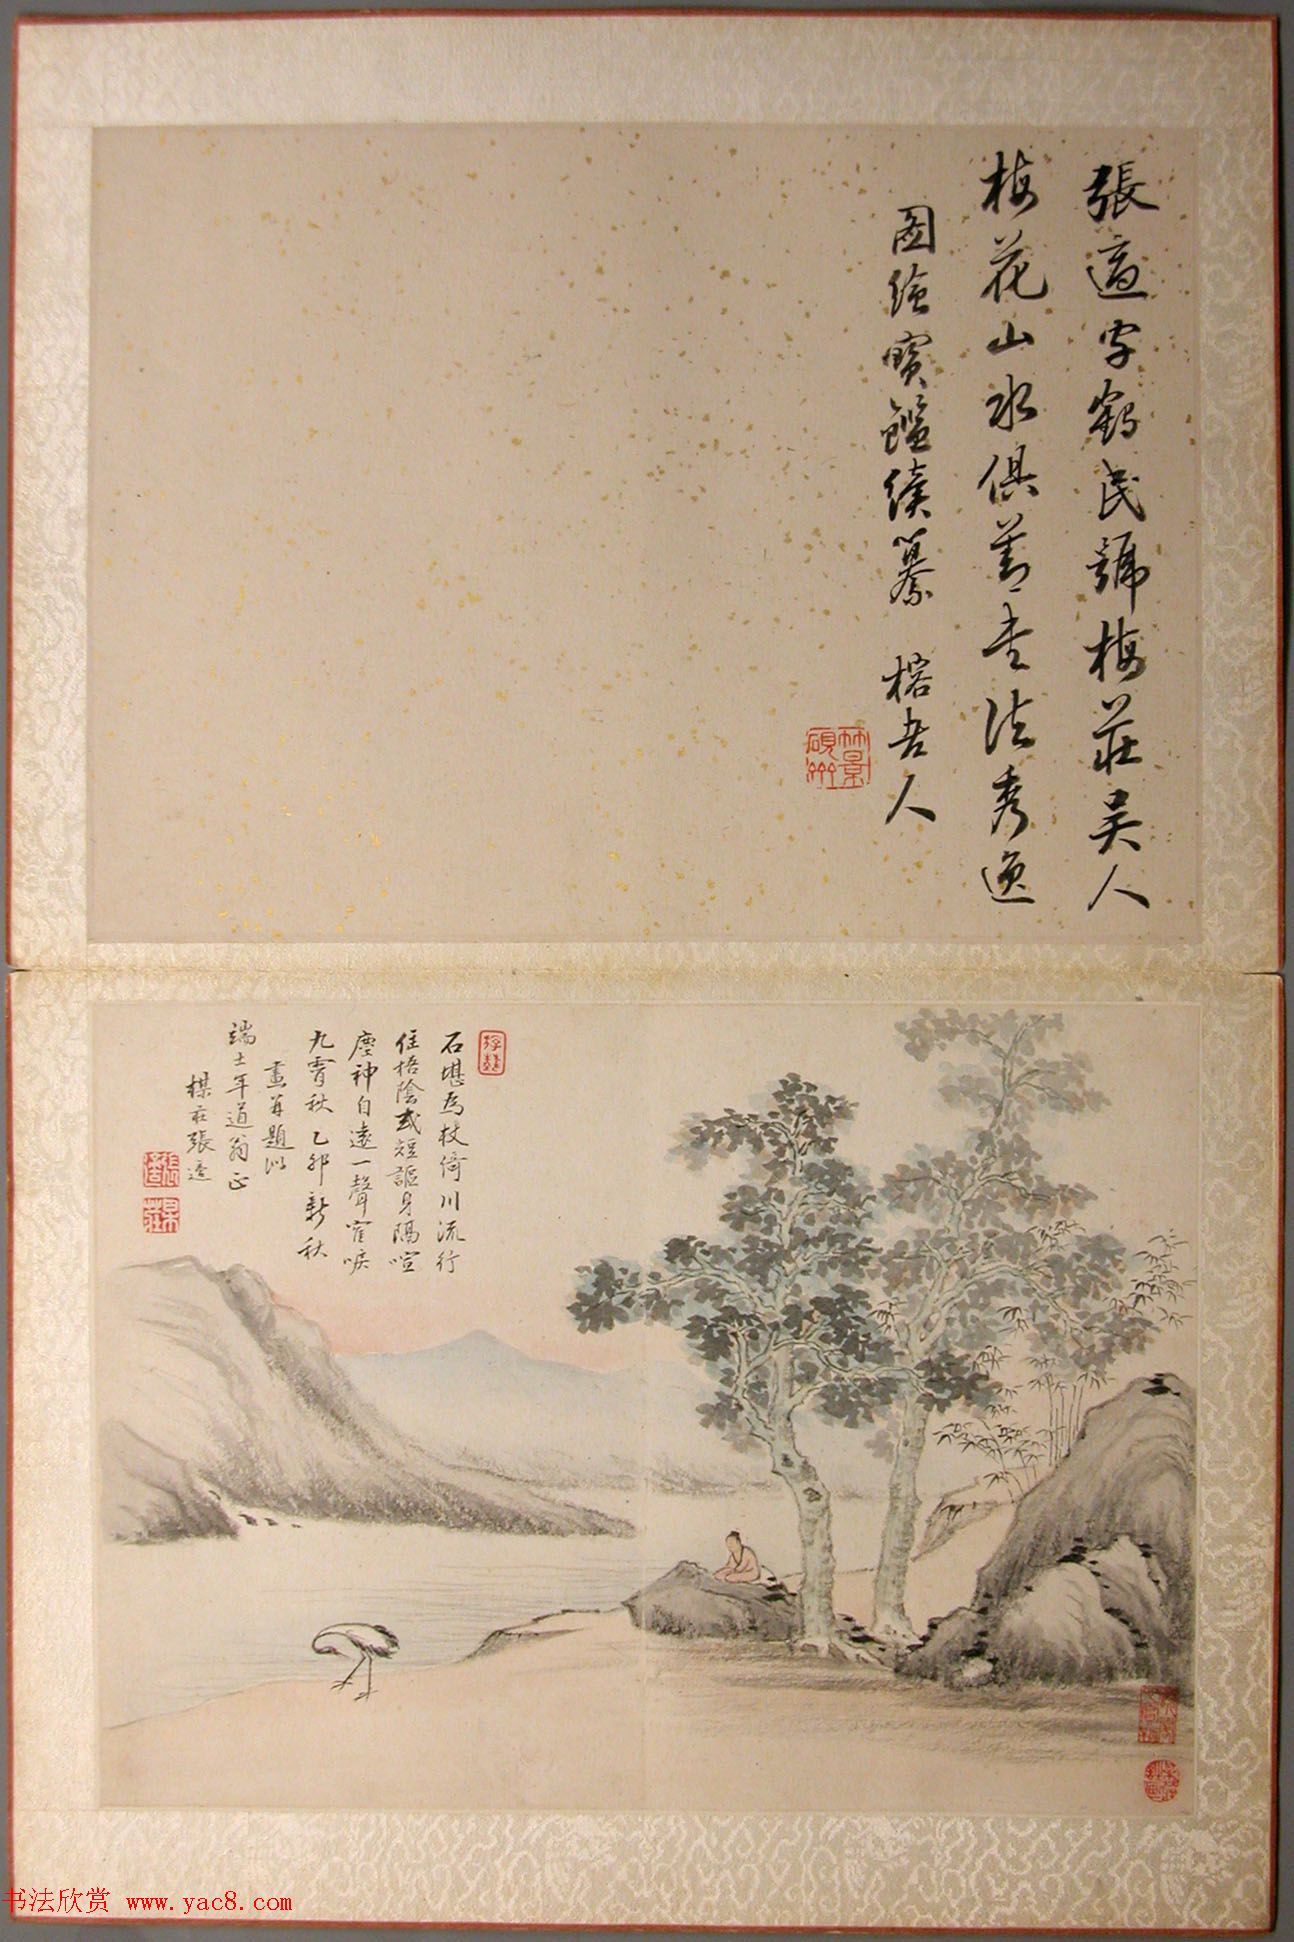 張適字鶴民號梅莊吳人
梅花山水俱善書法秀逸
圖繪寶鑑續纂 榕吾人
林景
碩卅
石堪為杖倚川流行
住梧陰或短謳身隔喧
塵神自遠一聲寉唳
九霄秋 乙卯新秋
畫并題似
端士年道翁正
楳莊張適
书法欣赏 www.yac8.com